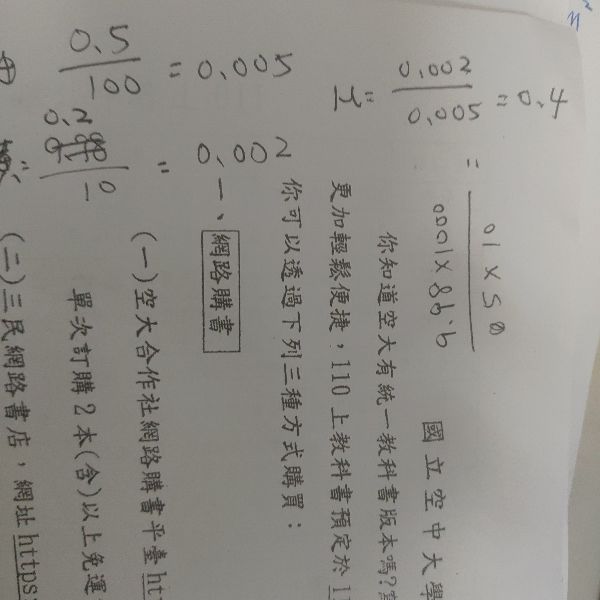 0.5
-100
= 0.005
μ=
0.002
0.005
= 0.4
0.2
-10
= 0.002
國立空中大學
你知道空大有統一教科書版本嗎?
更加輕鬆便捷，110 上教科書預定於
你可以透過下列三種方式購買：
一、網路購書
(一)空大合作社網路購書平臺
單次訂購 2 本(含)以上免運
(二)三民網路書店，網址 https: